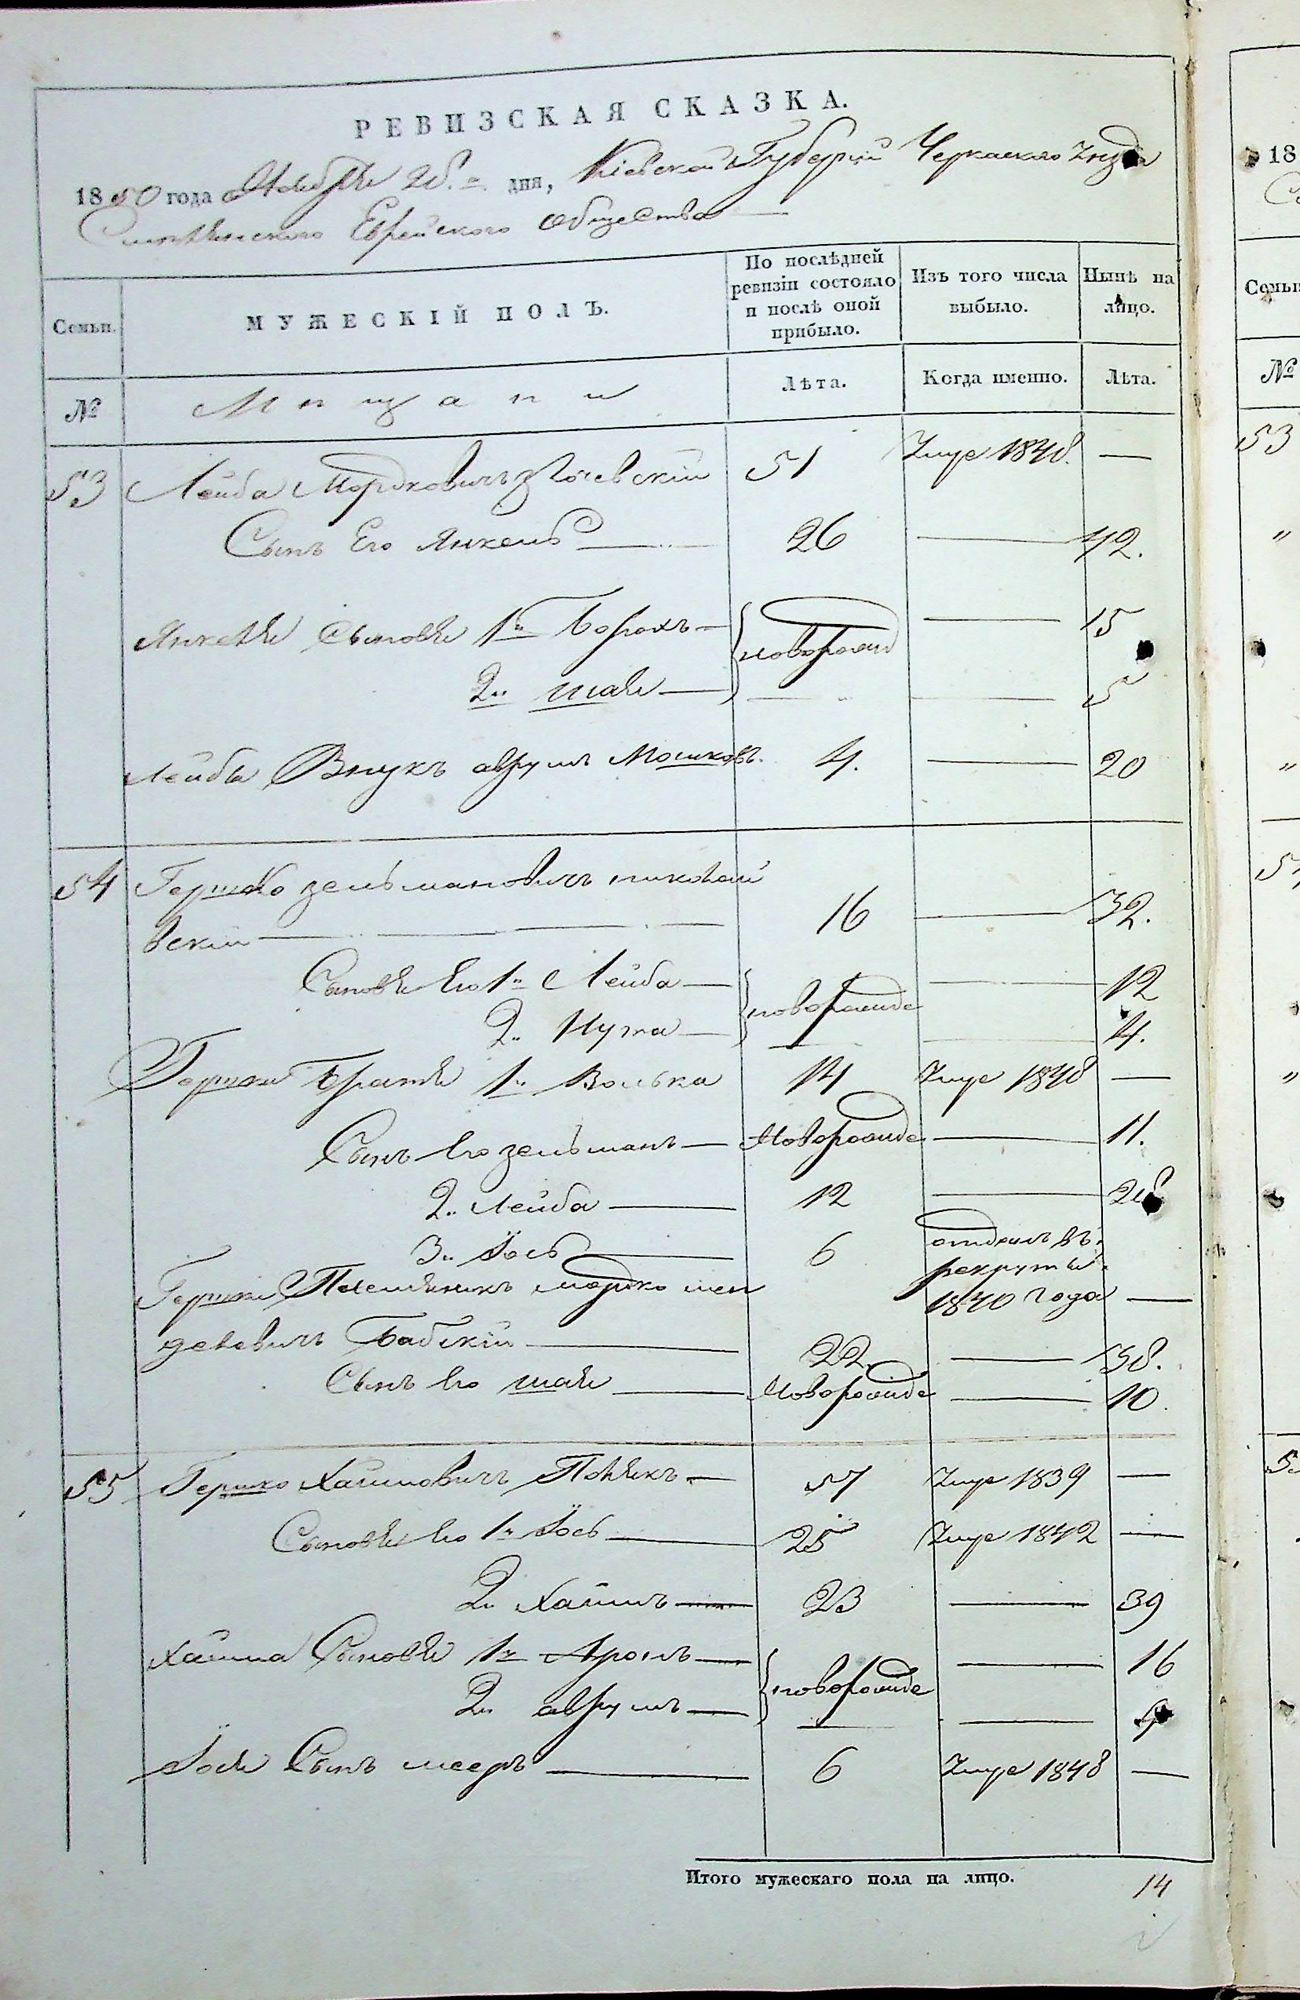 РЕВИЗСКАЯ СКАЗКА.
1850 года Ноября 28.го дня, Кіевской Губерніи Черкаскаго Уезда
Еврейскаго Общества
Семьи. МУЖЕСКІЙ ПОЛЪ. По послѣдней ревизіи состояло и послѣ оной прибыло. Изъ того числа выбыло. Нынѣ на лицо.
№ Мещани Лѣта. Когда именно. Лѣта.
53 Лейба Мордковичъ 51 Умре 1848. —
Сынъ Его Янкель — 26 — 42.
Янкеля Сыновья 1й Борохъ — новорожд — 15
2й Шая — — 5
Лейбы Внукъ аврумъ Мошковъ. 4. — 20
54 Гершко зельмановичъ
вскій — 16 — 32.
Сыновья Его 1й Лейба — новорожде — 12
2й Нухна — — 4.
Гершки Братья 1й Волька 14 Умре 1848 —
Сынъ Его зельманъ — Новорожде — 11.
2й Лейба — 12 — 28
3й Іось — 6 отданъ въ
рекруты
1840 года —
Гершки Племянникъ мордко мен
делевичъ Бабскій — 22. — 38.
Сынъ Его шая — Новорожде — 10.
55 Гершко Хаимовичъ Полякъ — 57 Умре 1839 —
Сыновья Его 1й Іось — 25 Умре 1842 —
2й Хаимъ — 23 — 39
Хаима Сыновья 1й Аронъ — новорожде — 16
2й аврумъ — — 9
Іося Сынъ мееръ — 6 Умре 1848 —
Итого мужескаго пола на лицо. 14
18
Семьи
№
53
"
"
54
"